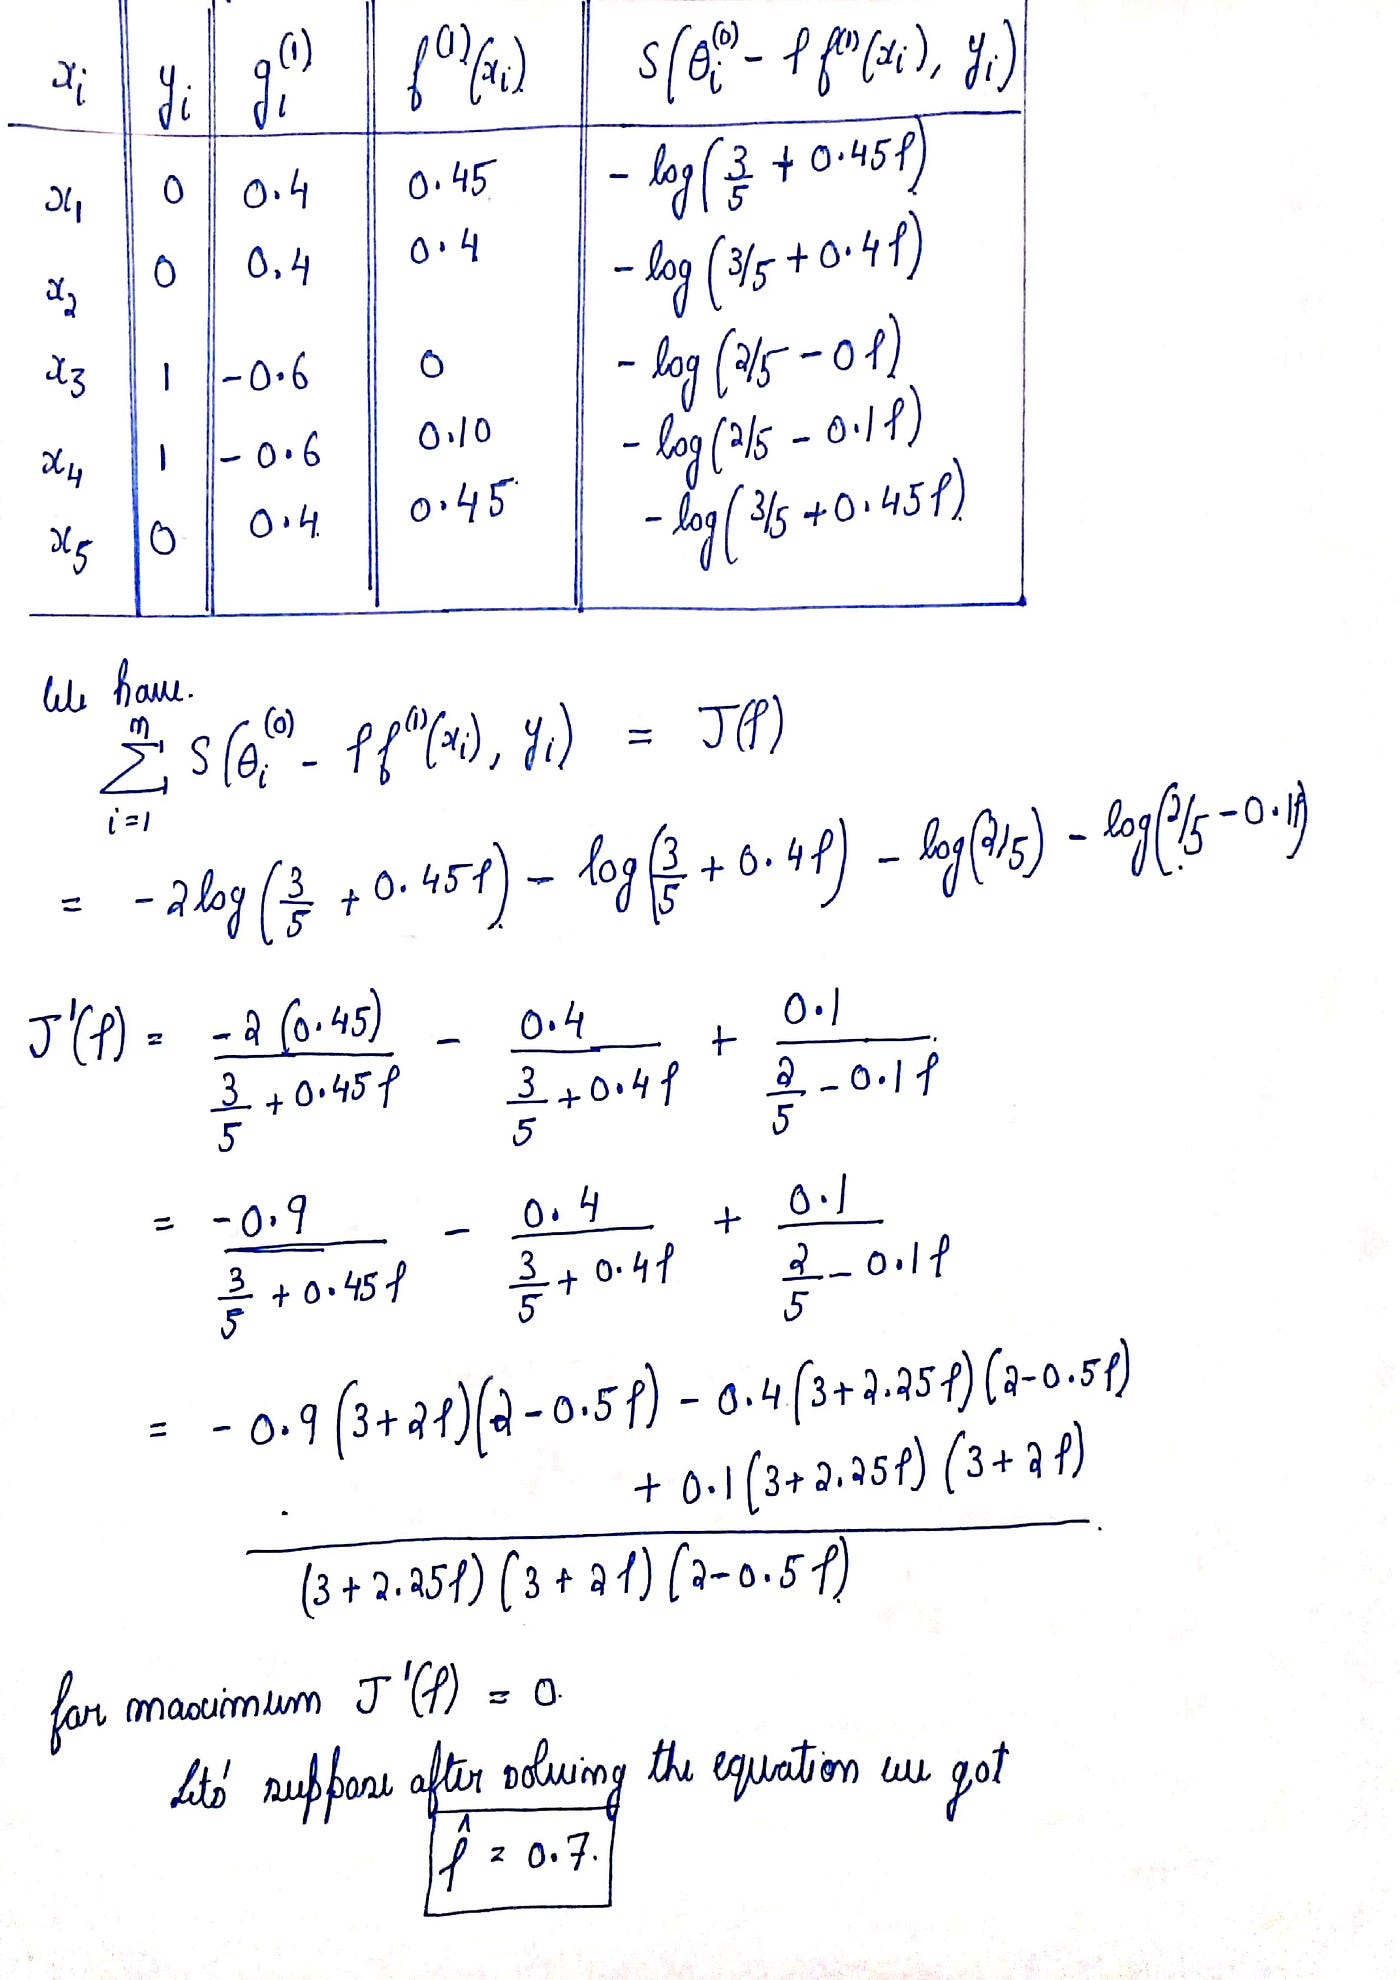 xᵢ yᵢ gᵢ⁽¹⁾ f⁽¹⁾(xᵢ) S(θᵢ⁽⁰⁾ - ρ f⁽¹⁾(xᵢ), yᵢ)
x₁ 0 0.4 0.45 - log(3/5 + 0.45ρ)
x₂ 0 0.4 0.4 - log(3/5 + 0.4ρ)
x₃ 1 -0.6 0 - log(2/5 - 0ρ)
x₄ 1 -0.6 0.10 - log(2/5 - 0.1ρ)
x₅ 0 0.4 0.45 - log(3/5 + 0.45ρ)
We have.
∑ᵢ₌₁ᵐ S(θᵢ⁽⁰⁾ - ρ f⁽¹⁾(xᵢ), yᵢ) = J(ρ)
= - 2log(3/5 + 0.45ρ) - log(3/5 + 0.4ρ) - log(2/5) - log(2/5 - 0.1ρ)
J'(ρ) = -2(0.45)/(3/5 + 0.45ρ) - 0.4/(3/5 + 0.4ρ) + 0.1/(2/5 - 0.1ρ)
= -0.9/(3/5 + 0.45ρ) - 0.4/(3/5 + 0.4ρ) + 0.1/(2/5 - 0.1ρ)
= - 0.9(3+2ρ)(2-0.5ρ) - 0.4(3+2.25ρ)(2-0.5ρ)
+ 0.1(3+2.25ρ)(3+2ρ)
(3+2.25ρ)(3+2ρ)(2-0.5ρ)
for maximum J'(ρ) = 0.
Let's suppose after solving the equation we got
ρ̂ = 0.7.